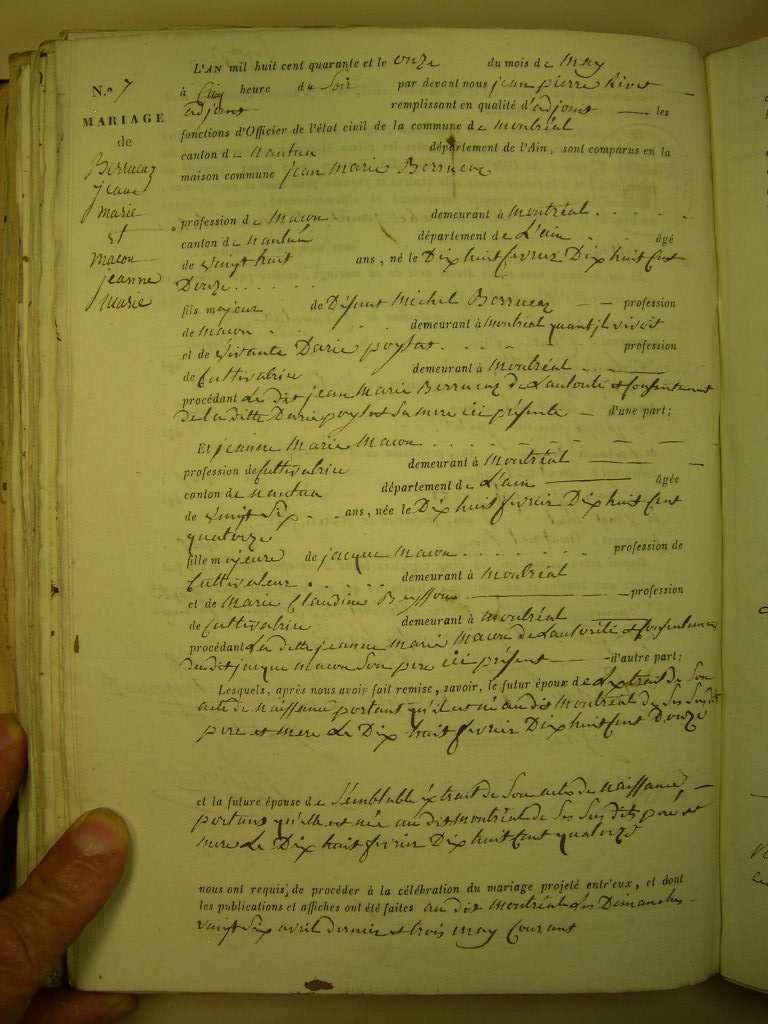 N.º 7
MARIAGE
de
Berrucaz
jean
marie
et
macon
jeanne
marie
L'AN mil huit cent quarante et le onze du mois de may
à cinq heure du soir par devant nous jean pierre
adjoint remplissant en qualité d'adjoint les
fonctions d'Officier de l'état civil de la commune de montréal
canton de nantua département de l'Ain, sont comparus en la
maison commune jean marie Berrucaz
profession de macon demeurant à montréal
canton de nantua département de L'ain âgé
de vingt huit ans, né le Dix huit fevrier Dix huit Cent
Douze
fils majeur de Défunt Michel Berrucaz profession
de macon demeurant à montréal quant jl vivoit
et de vivante Darie poylat profession
de Cultivatrice demeurant à montréal
procédant Le dit jean marie Berrucaz de Lautorité et Consentement
de la ditte Darie poylat Sa mere ici présente d'une part;
Et jeanne Marie Macon
profession de Cultivatrice demeurant à montréal
canton de nantua département de L'ain âgée
de vingt Six ans, née le Dix huit fevrier Dix huit Cent
quatorze
fille majeure de jacque macon profession de
Cultivateur demeurant à montréal
et de Marie Claudine profession
de Cultivatrice demeurant à montréal
procédant La ditte jeanne marie Macon de Lautorité et Consentement
du dit jacque macon Son pere ici présent d'autre part;
Lesquels, après nous avoir fait remise, savoir, le futur époux de Lextrait de Son
acte de naissance portant qu'il est né au dit montréal de Ses Susdits
pere et mere Le Dix huit fevrier Dix huit Cent Douze
et la future épouse de Semblable éxtrait de Son acte de naissance,
portant qu'elle est née au dit montréal de Ses Sus dits pere et
mere Le Dix huit fevrier Dix huit Cent quatorze
nous ont requis, de procéder à la célébration du mariage projeté entr'eux, et dont
les publications et affiches ont été faites au dit montréal Les Dimanches
vingt Six avril dernier et trois may Courant